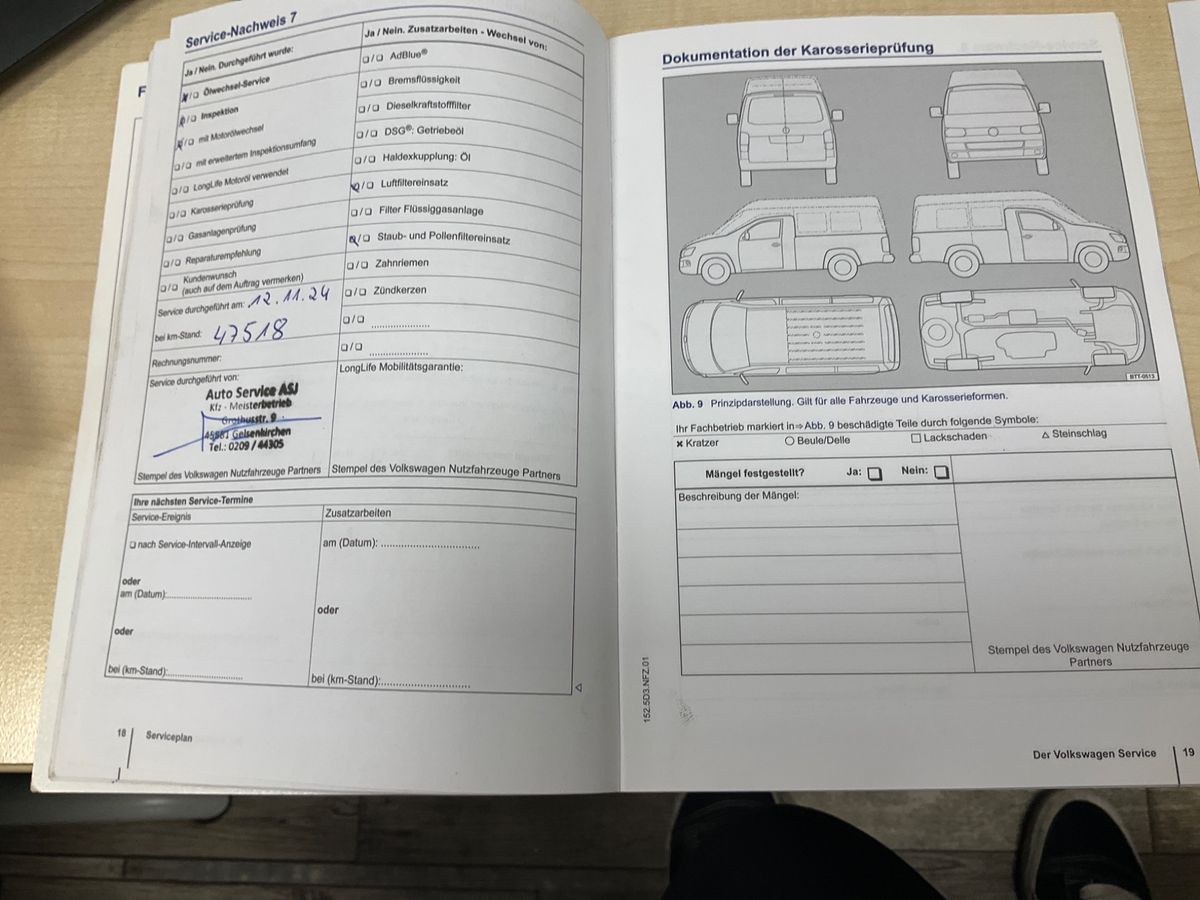 Service-Nachweis 7
Ja / Nein. Durchgeführt wurde:
❑/❑ Ölwechsel-Service
❑/❑ Inspektion
❑/❑ mit Motorölwechsel
❑/❑ mit erweitertem Inspektionsumfang
❑/❑ LongLife Motoröl verwendet
❑/❑ Karosserieprüfung
❑/❑ Gasanlagenprüfung
❑/❑ Reparaturempfehlung
❑/❑ Kundenwunsch
(auch auf dem Auftrag vermerken)
Service durchgeführt am: 12.11.24
bei km-Stand: 47518
Rechnungsnummer:
Service durchgeführt von:
Auto Service ASJ
Kfz - Meisterbetrieb
Grothusstr. 9
45881 Gelsenkirchen
Tel.: 0209 / 44305
Stempel des Volkswagen Nutzfahrzeuge Partners
Ja / Nein. Zusatzarbeiten - Wechsel von:
❑/❑ AdBlue®
❑/❑ Bremsflüssigkeit
❑/❑ Dieselkraftstofffilter
❑/❑ DSG®: Getriebeöl
❑/❑ Haldexkupplung: Öl
❑/❑ Luftfiltereinsatz
❑/❑ Filter Flüssiggasanlage
❑/❑ Staub- und Pollenfiltereinsatz
❑/❑ Zahnriemen
❑/❑ Zündkerzen
❑/❑ ....................
❑/❑ ....................
LongLife Mobilitätsgarantie:
Stempel des Volkswagen Nutzfahrzeuge Partners
Ihre nächsten Service-Termine
Service-Ereignis
❑ nach Service-Intervall-Anzeige
oder
am (Datum):..........................
oder
bei (km-Stand):.......................
Zusatzarbeiten
am (Datum): ..............................
oder
bei (km-Stand):...........................
18
Serviceplan
Dokumentation der Karosserieprüfung
BTT-0513
Abb. 9 Prinzipdarstellung. Gilt für alle Fahrzeuge und Karosserieformen.
Ihr Fachbetrieb markiert in⇒ Abb. 9 beschädigte Teile durch folgende Symbole:
✖ Kratzer ○ Beule/Delle □ Lackschaden △ Steinschlag
Mängel festgestellt? Ja: ❑ Nein: ❑
Beschreibung der Mängel:
Stempel des Volkswagen Nutzfahrzeuge
Partners
152.5D3.NFZ.01
Der Volkswagen Service
19